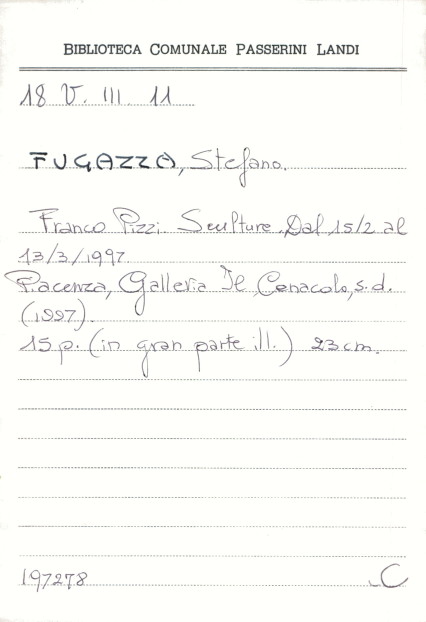 BIBLIOTECA COMUNALE PASSERINI LANDI
18 V. III 11
FUGAZZA, Stefano.
Franco Pizzi. Sculture. Dal 15/2 al
13/3/1997.
Piacenza, Galleria Il Cenacolo, s.d.
(1997).
15 p. (in gran parte ill.) 23 cm.
197278
C